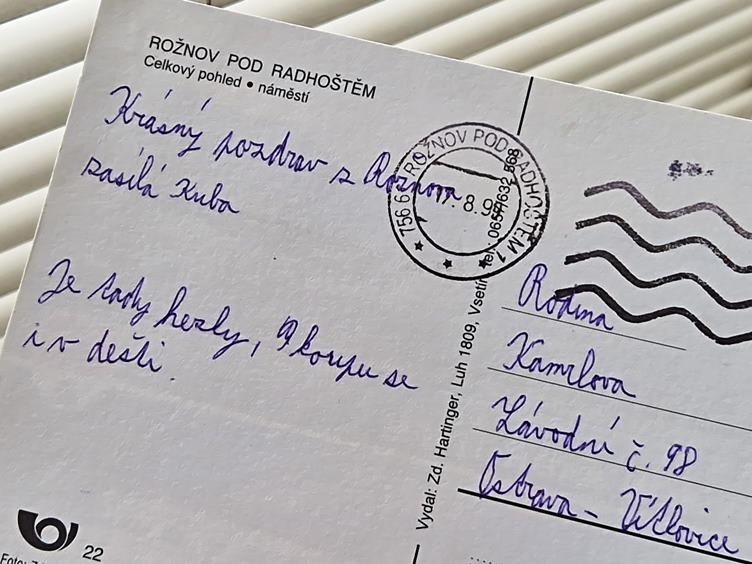 ROŽNOV POD RADHOŠTĚM
Celkový pohled • náměstí
Krásný pozdrav z Rožnova
zasílá Kuba
Je tady hezky, i v dešti.
756 6 ROŽNOV POD RADHOŠTĚM 1
8.9
Rodina
Kamilova
Závodní č. 98
Ostrava - Vítkovice
Vydal: Zd. Hartinger, Luh 1809, Vsetín
22
Foto: